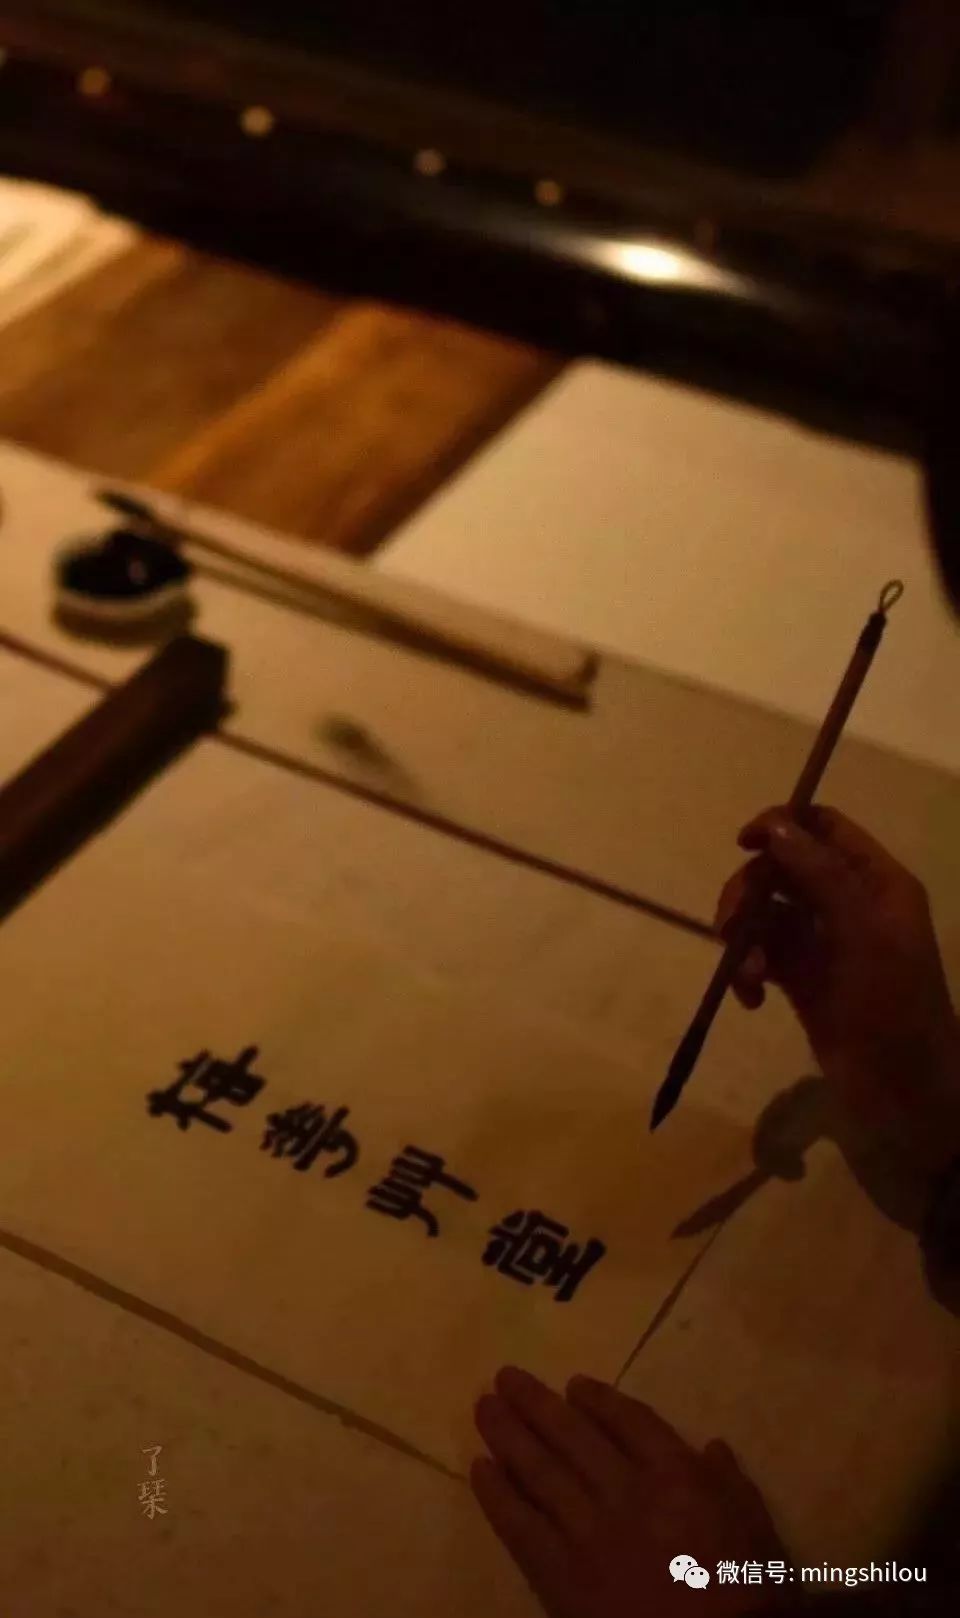 艸堂
了琹
微信号: mingshilou